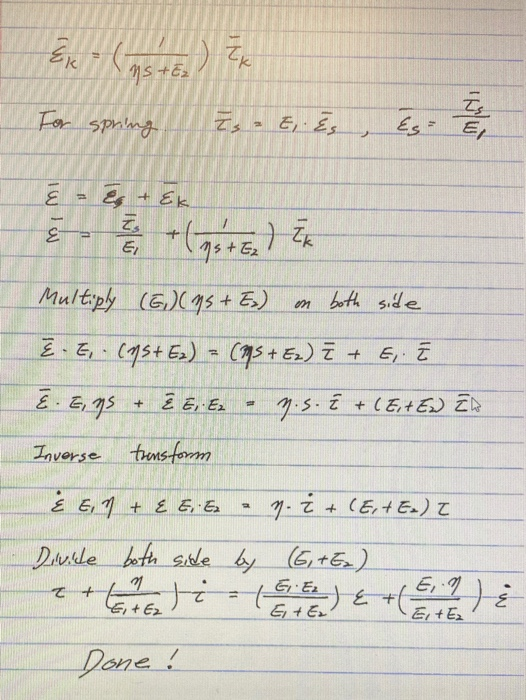 ε̄k = (1/(ηs+E₂)) τ̄k
For spring τ̄s = E₁·ε̄s , ε̄s = τ̄s/E₁
ε̄ = ε̄s + ε̄k
ε̄ = τ̄s/E₁ + (1/(ηs+E₂)) τ̄k
Multiply (E₁)(ηs + E₂) on both side
ε̄·E₁·(ηs+E₂) = (ηs+E₂) τ̄ + E₁·τ̄
ε̄·E₁ηs + ε̄ E₁·E₂ = η·s·τ̄ + (E₁+E₂) τ̄
Inverse transform
ε̇ E₁η + ε E₁·E₂ = η·τ̇ + (E₁+E₂) τ
Divide both side by (E₁+E₂)
τ + (η/(E₁+E₂)) τ̇ = (E₁·E₂/(E₁+E₂)) ε + (E₁·η/(E₁+E₂)) ε̇
Done!